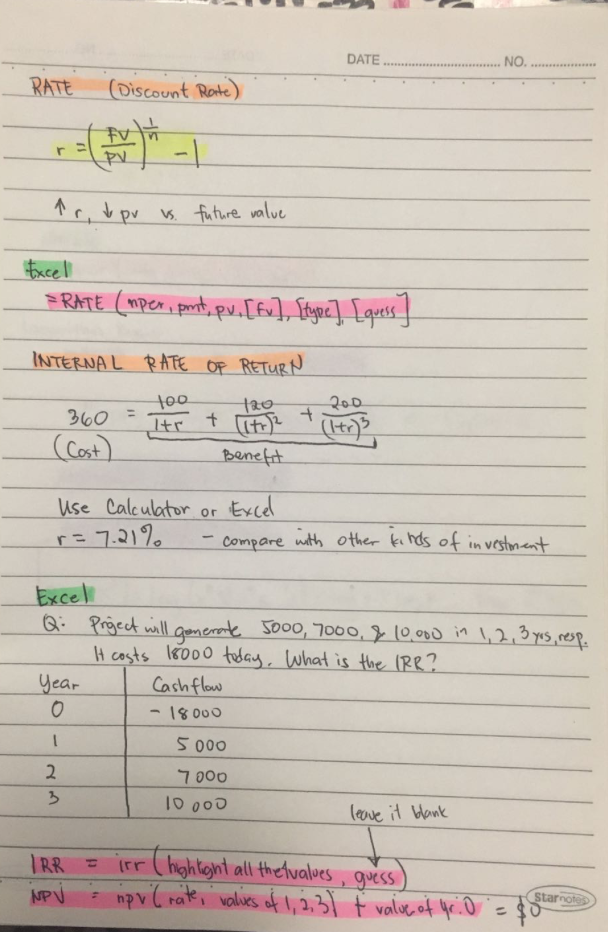 DATE ........................ NO. ................
RATE (Discount Rate)
r = (FV/PV)^(1/n) - 1
↑ r, ↓ pv vs. future value
Excel
=RATE (nper, pmt, pv, [fv], [type], [guess]
INTERNAL RATE OF RETURN
360 = 100/(1+r) + 120/(1+r)² + 200/(1+r)³
(Cost) Benefit
Use Calculator or Excel
r = 7.21% - compare with other kinds of investment
Excel
Q: Project will generate 5000, 7000, & 10,000 in 1, 2, 3 yrs, resp.
It costs 18000 today. What is the IRR?
Year Cashflow
0 - 18000
1 5 000
2 7 000
3 10 000
leave it blank
IRR = irr (highlight all the values, guess)
NPV = npv (rate, values of 1, 2, 3) + value of yr. 0 = $0
Starnotes